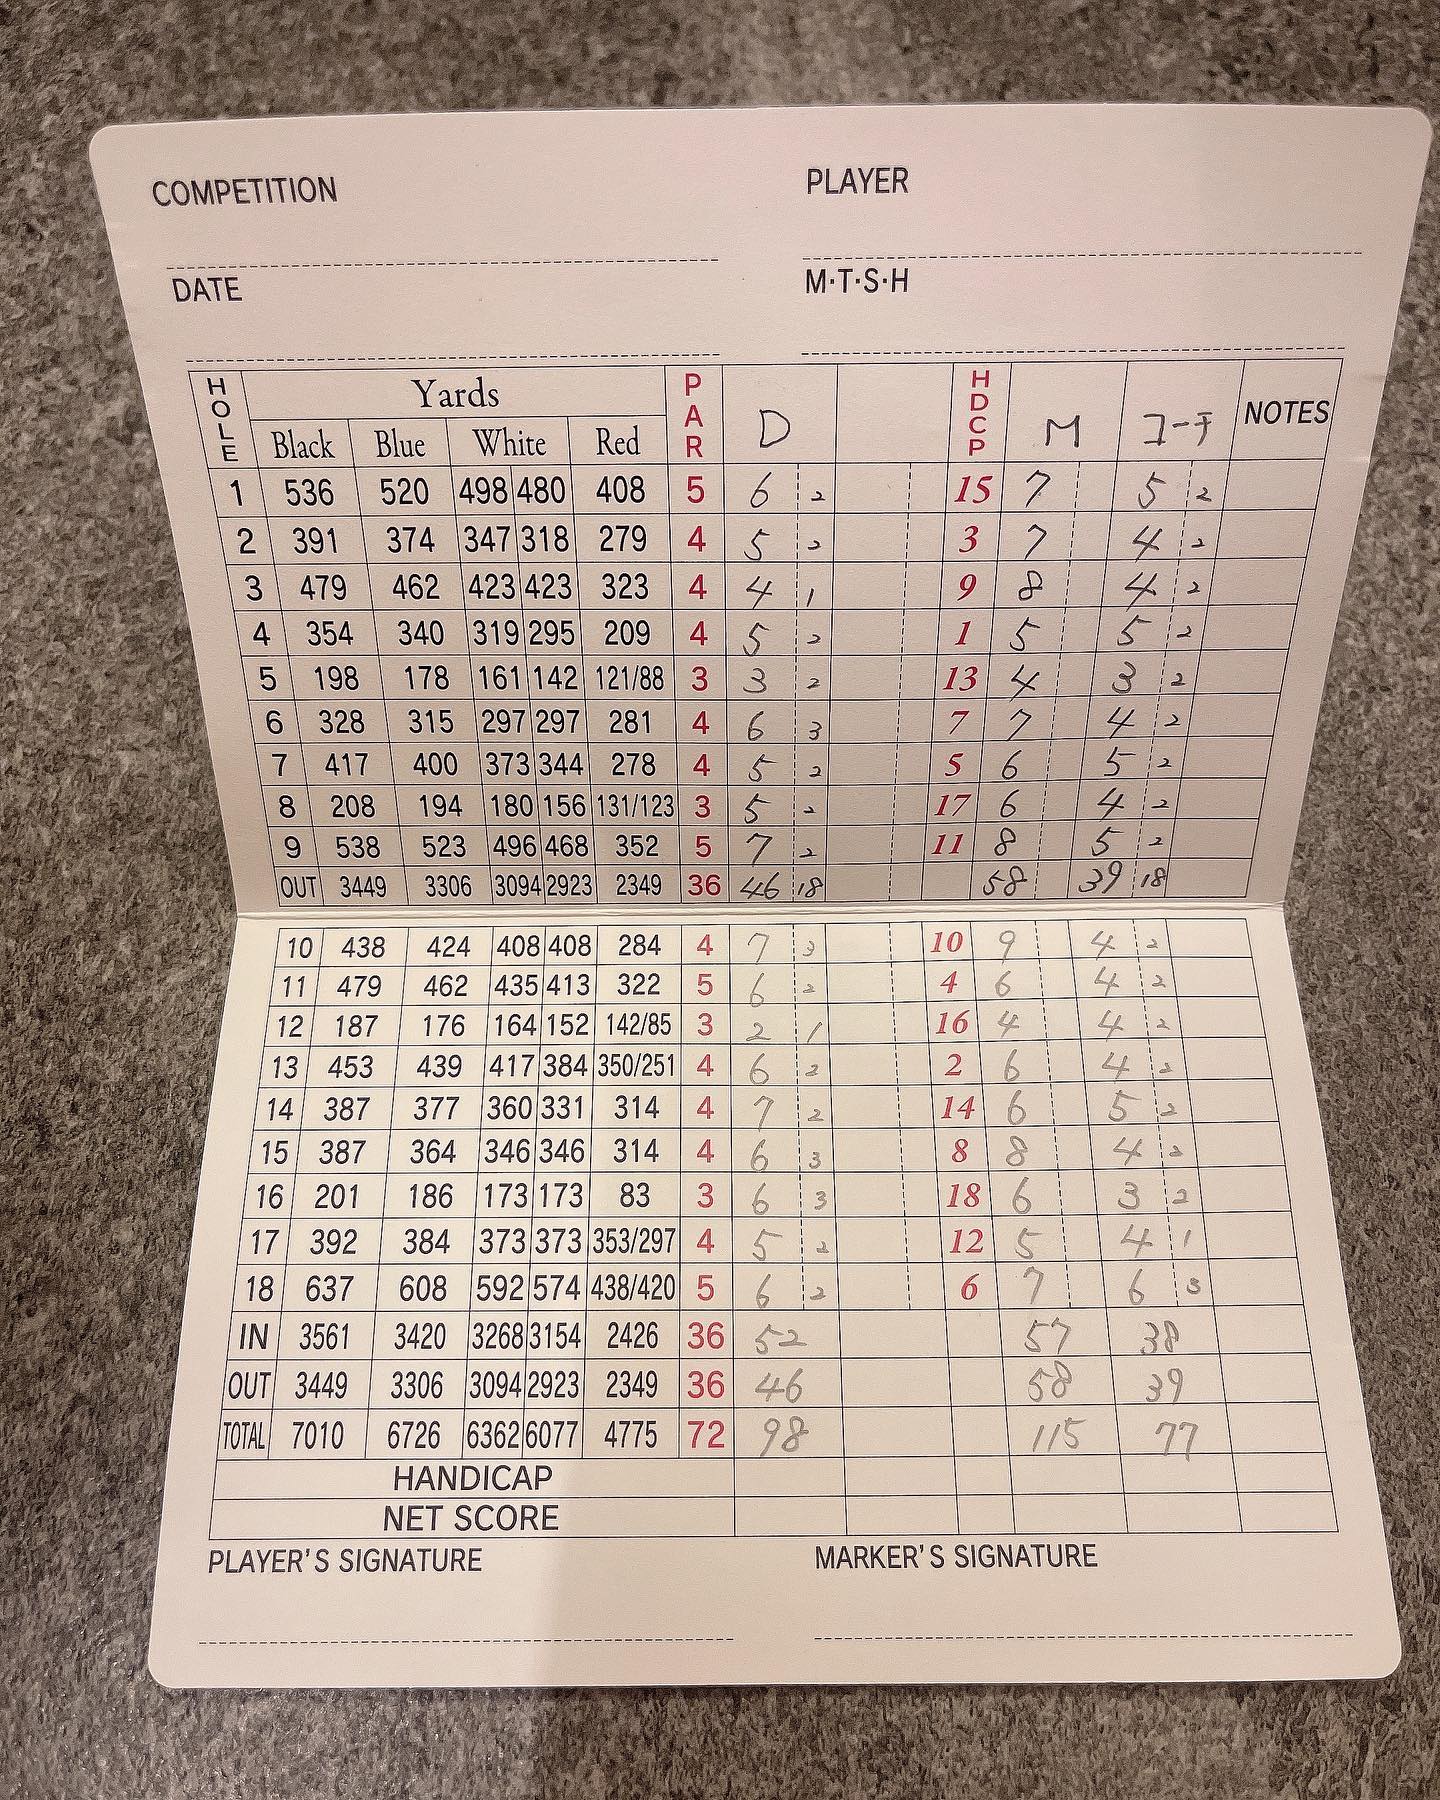 COMPETITION PLAYER
DATE M·T·S·H
HOLE Yards PAR D HDCP M コーチ NOTES
Black Blue White Red
1 536 520 498 480 408 5 6 2 15 7 5 2
2 391 374 347 318 279 4 5 2 3 7 4 2
3 479 462 423 423 323 4 4 1 9 8 4 2
4 354 340 319 295 209 4 5 2 1 5 5 2
5 198 178 161 142 121/88 3 3 2 13 4 3 2
6 328 315 297 297 281 4 6 3 7 7 4 2
7 417 400 373 344 278 4 5 2 5 6 5 2
8 208 194 180 156 131/123 3 5 2 17 6 4 2
9 538 523 496 468 352 5 7 2 11 8 5 2
OUT 3449 3306 3094 2923 2349 36 46 18 58 39 18
10 438 424 408 408 284 4 7 3 10 9 4 2
11 479 462 435 413 322 5 6 2 4 6 4 2
12 187 176 164 152 142/85 3 2 1 16 4 4 2
13 453 439 417 384 350/251 4 6 2 2 6 4 2
14 387 377 360 331 314 4 7 2 14 6 5 2
15 387 364 346 346 314 4 6 3 8 8 4 2
16 201 186 173 173 83 3 6 3 18 6 3 2
17 392 384 373 373 353/297 4 5 2 12 5 4 1
18 637 608 592 574 438/420 5 6 2 6 7 6 3
IN 3561 3420 3268 3154 2426 36 52 57 38
OUT 3449 3306 3094 2923 2349 36 46 58 39
TOTAL 7010 6726 6362 6077 4775 72 98 115 77
HANDICAP
NET SCORE
PLAYER'S SIGNATURE MARKER'S SIGNATURE